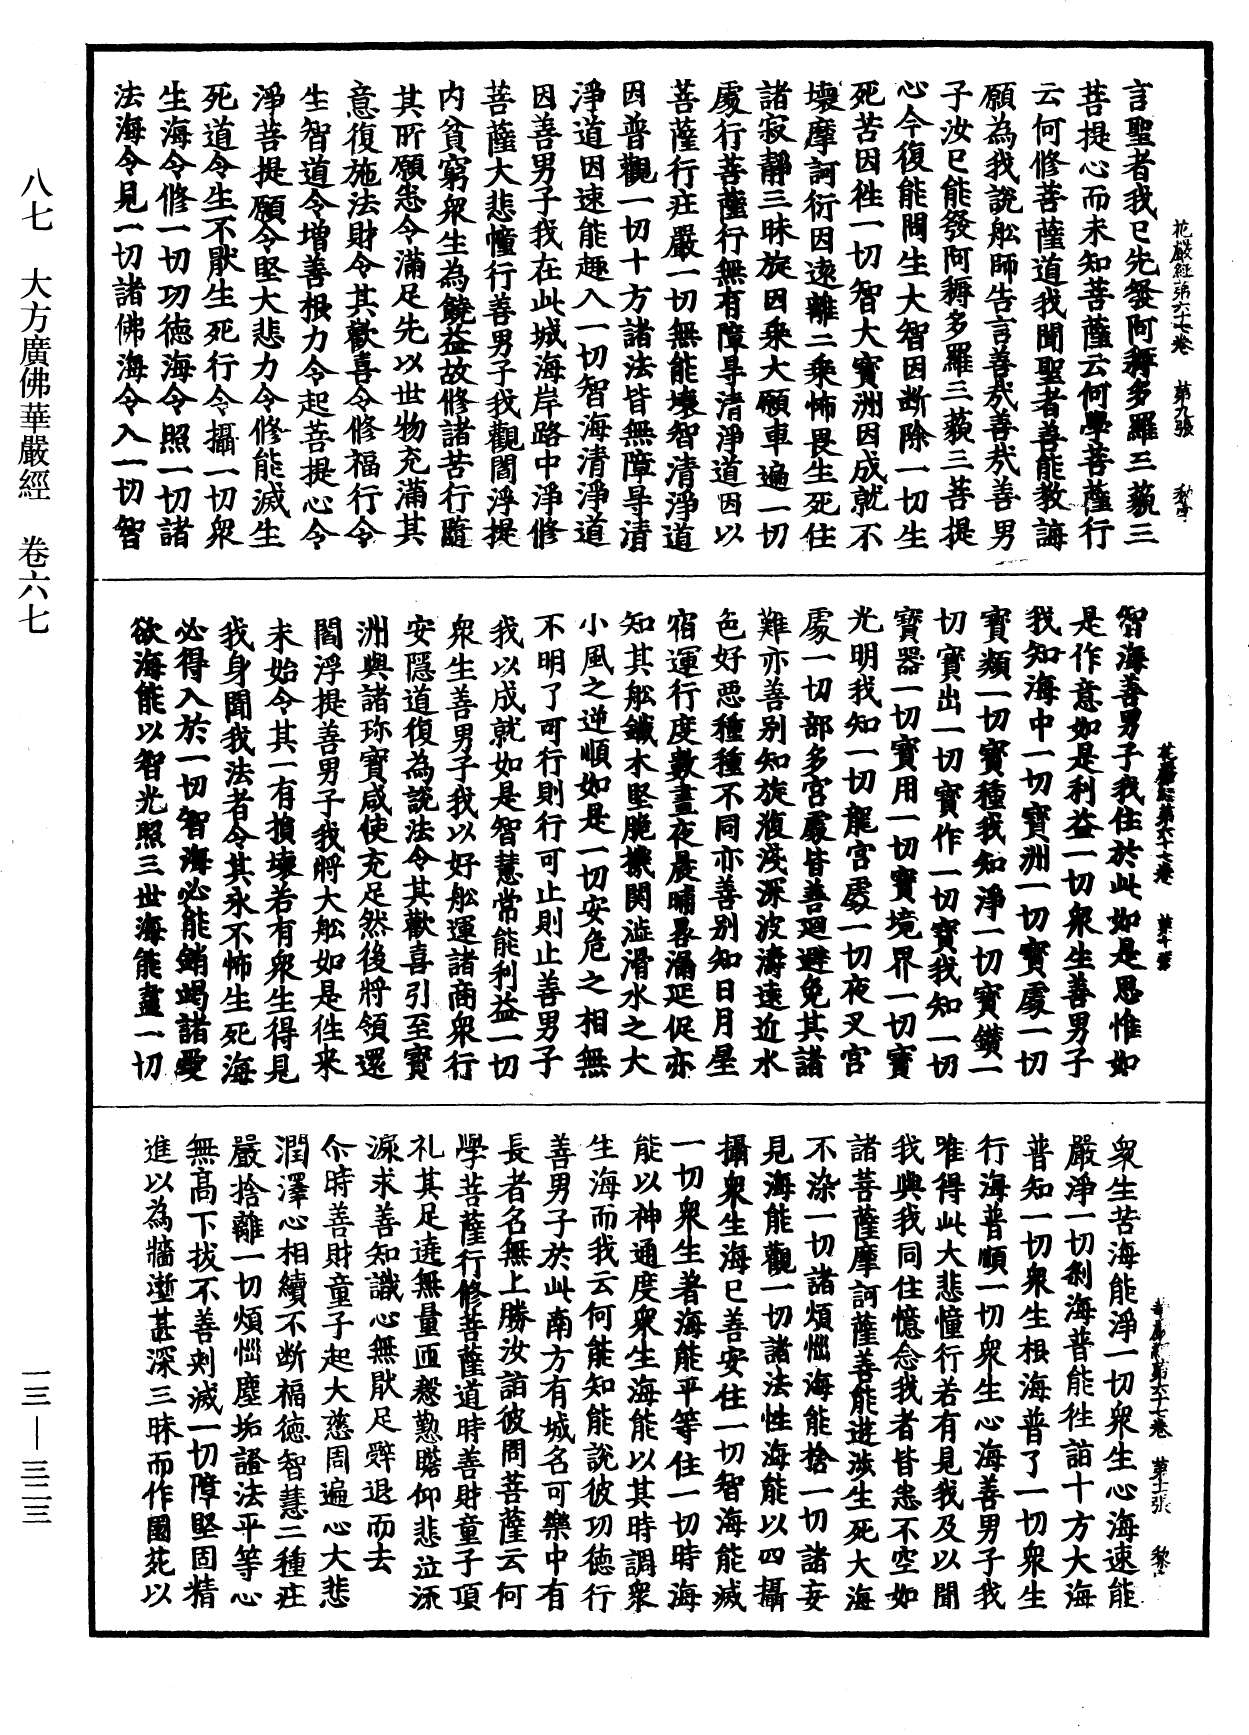 八七　大方廣佛華嚴經　卷六七
一三—三二三
花嚴經第六十七卷　第九張　黎字
言聖者我已先發阿耨多羅三藐三
菩提心而未知菩薩云何學菩薩行
云何修菩薩道我聞聖者善能教誨
願為我說舩師告言善哉善哉善男
子汝已能發阿耨多羅三藐三菩提
心今復能問生大智因斷除一切生
死苦因徃一切智大寶洲因成就不
壞摩訶衍因遠離二乘怖畏生死住
諸寂靜三昧旋因乘大願車遍一切
處行菩薩行無有障㝵清淨道因以
菩薩行莊嚴一切無能壞智清淨道
因普觀一切十方諸法皆無障㝵清
淨道因速能趣入一切智海清淨道
因善男子我在此城海岸路中淨修
菩薩大悲幢行善男子我觀閻浮提
內貧窮衆生為饒益故修諸苦行隨
其所願悉令滿足先以世物充滿其
意復施法財令其歡喜令修福行令
生智道令增善根力令起菩提心令
淨菩提願令堅大悲力令修能滅生
死道令生不猒生死行令攝一切衆
生海令修一切功德海令照一切諸
法海令見一切諸佛海令入一切智
花嚴經第六十七卷　第十張
智海善男子我住於此如是思惟如
是作意如是利益一切衆生善男子
我知海中一切寶洲一切寶處一切
寶類一切寶種我知淨一切寶鑽一
切寶出一切寶作一切寶我知一切
寶器一切寶用一切寶境界一切寶
光明我知一切龍宮處一切夜叉宮
處一切部多宮處皆善迴避免其諸
難亦善別知旋澓淺深波濤遠近水
色好惡種種不同亦善別知日月星
宿運行度數晝夜晨晡晷漏延促亦
知其舩鐵木堅脆機関澁滑水之大
小風之逆順如是一切安危之相無
不明了可行則行可止則止善男子
我以成就如是智慧常能利益一切
衆生善男子我以好舩運諸商衆行
安隱道復為說法令其歡喜引至寶
洲與諸珎寶咸使充足然後將領還
閻浮提善男子我將大舩如是徃来
未始令其一有損壞若有衆生得見
我身聞我法者令其永不怖生死海
必得入於一切智海必能銷竭諸愛
欲海能以智光照三世海能盡一切
華嚴經第六十七卷　第十一張　黎字
衆生苦海能淨一切衆生心海速能
嚴淨一切刹海普能徃詣十方大海
普知一切衆生根海普了一切衆生
行海普順一切衆生心海善男子我
唯得此大悲幢行若有見我及以聞
我與我同住憶念我者皆悉不空如
諸菩薩摩訶薩善能遊涉生死大海
不染一切諸煩惱海能捨一切諸妄
見海能觀一切諸法性海能以四攝
攝衆生海已善安住一切智海能滅
一切衆生著海能平等住一切時海
能以神通度衆生海能以其時調衆
生海而我云何能知能說彼功德行
善男子於此南方有城名可樂中有
長者名無上勝汝詣彼問菩薩云何
學菩薩行修菩薩道時善財童子頂
礼其足遶無量匝慇懃瞻仰悲泣流
淚求善知識心無猒足辭退而去
尒時善財童子起大慈周遍心大悲
潤澤心相續不断福德智慧二種莊
嚴捨離一切煩惱塵垢證法平等心
無高下拔不善刺滅一切障堅固精
進以為牆壍甚深三昧而作園苑以